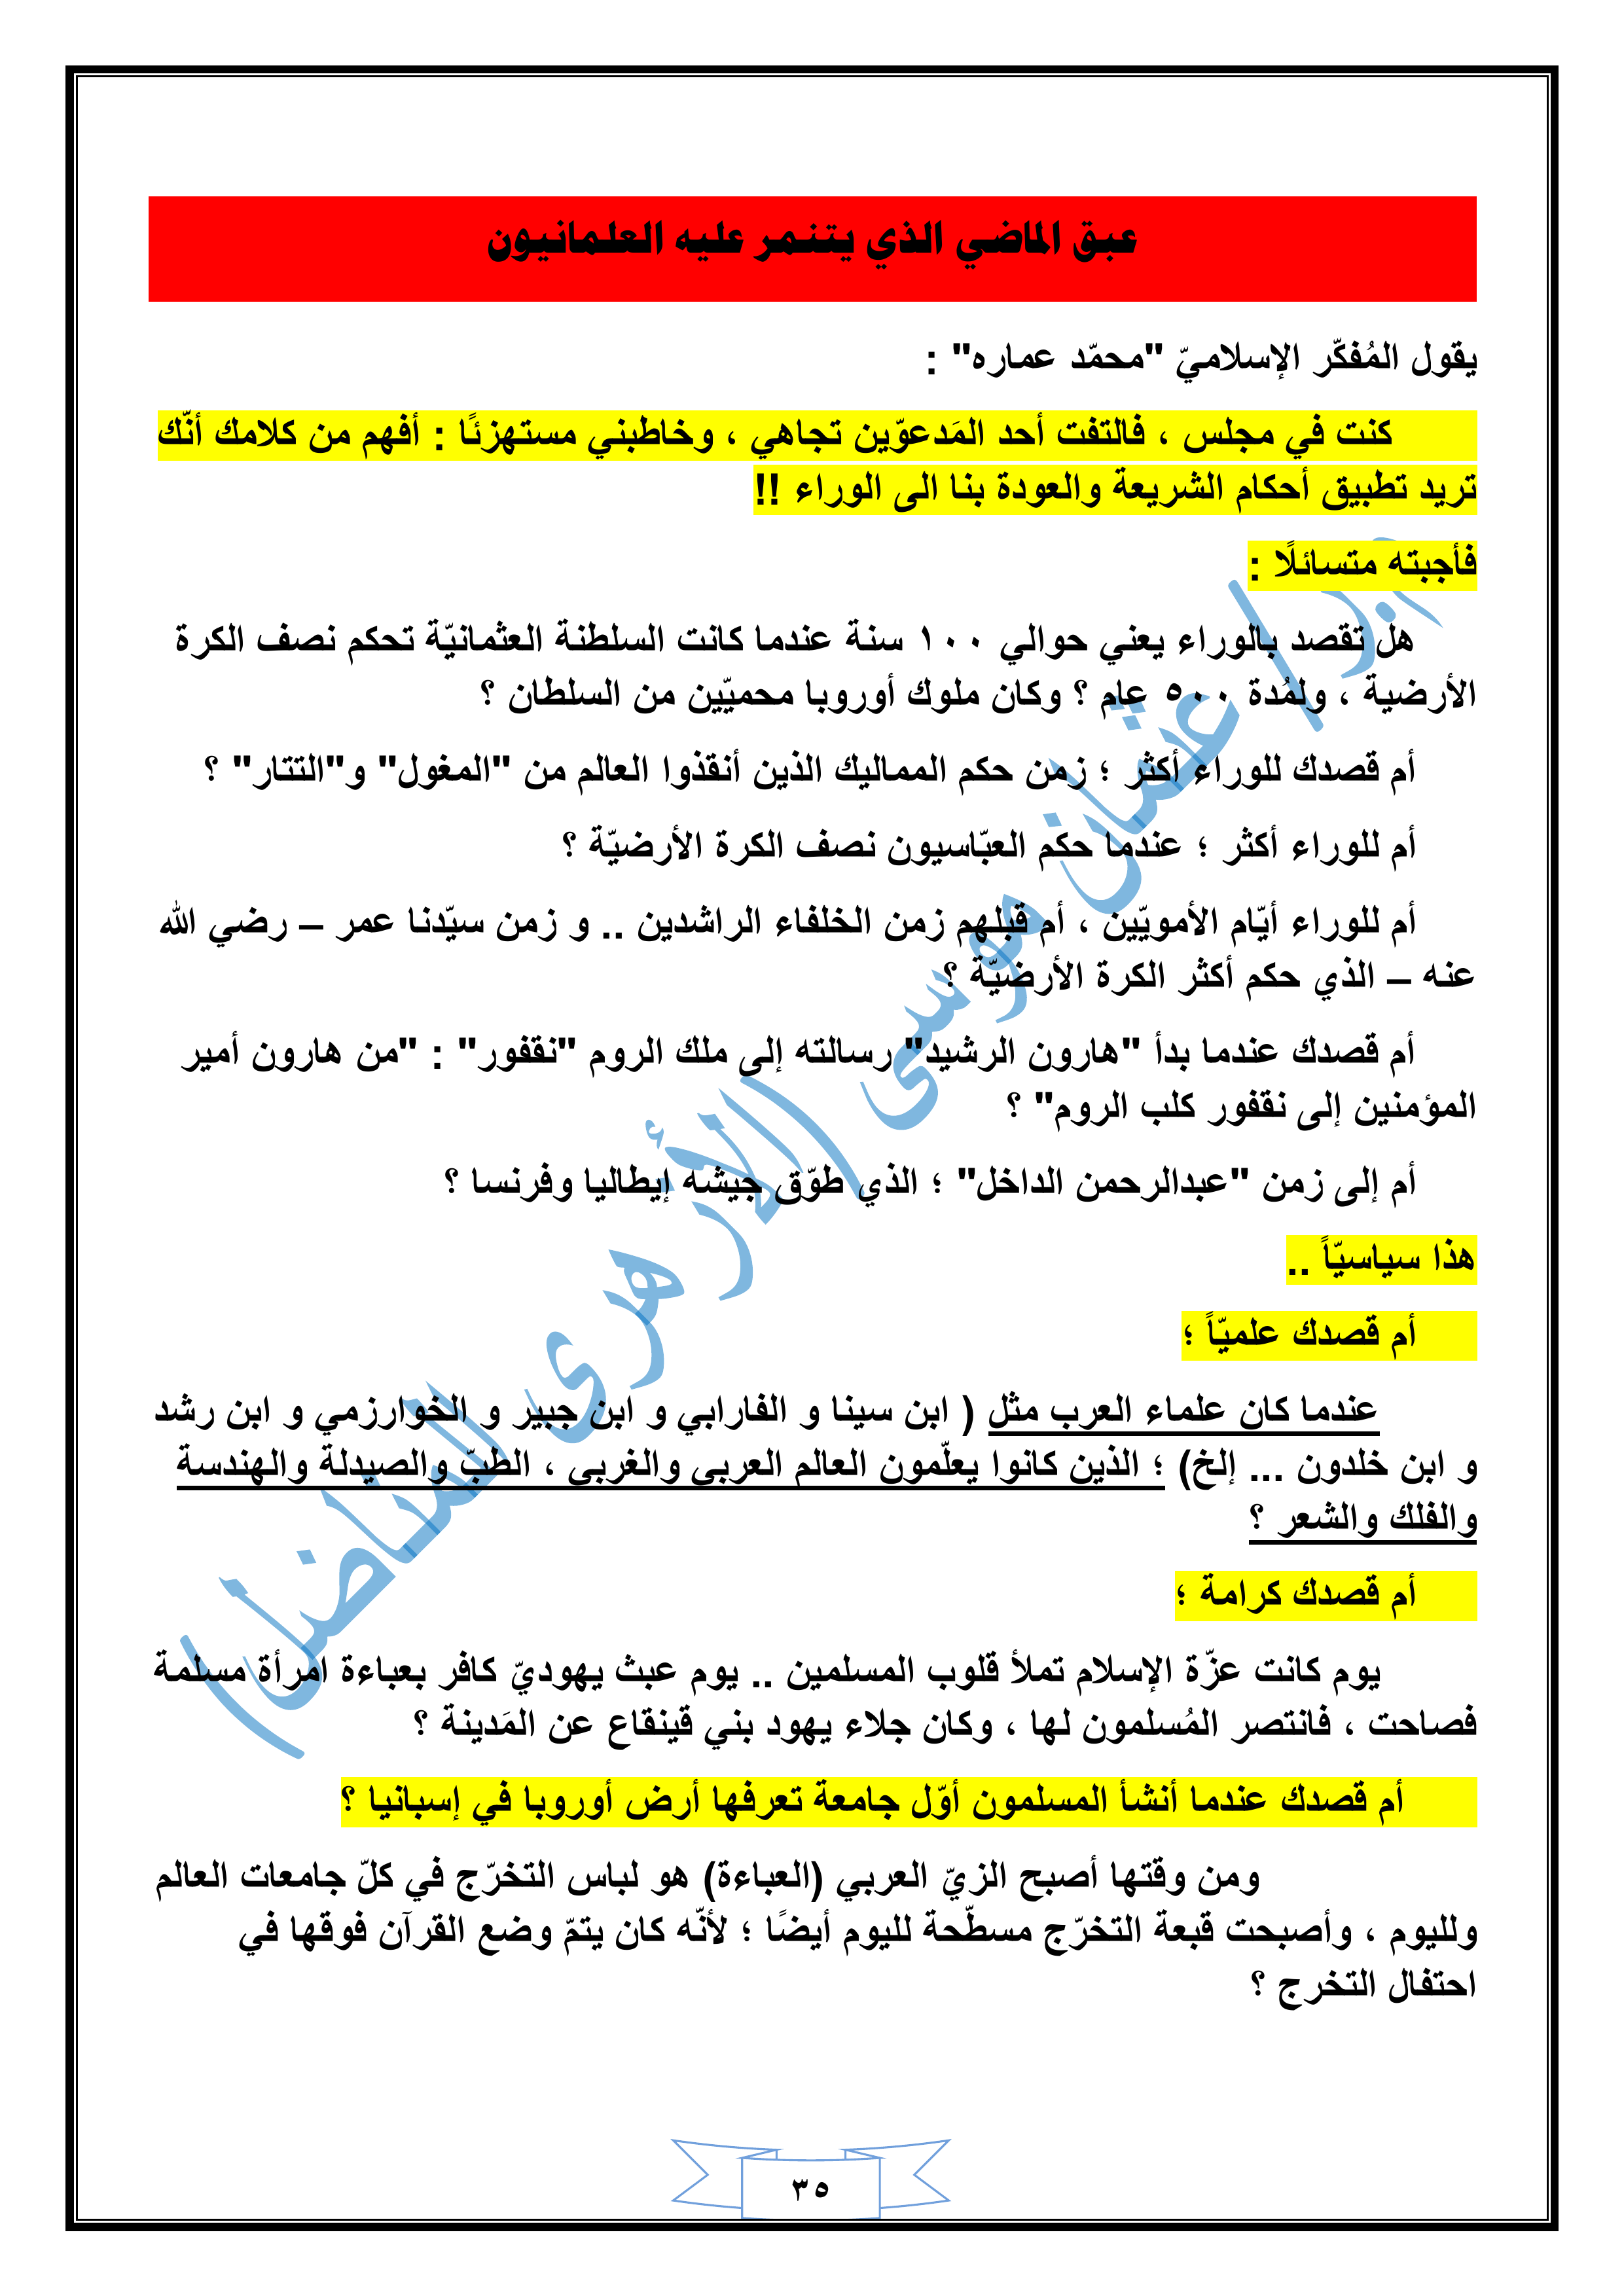 عبق الماضي الذي يتنمر عليه العلمانيون
يقول المُفكّر الإسلاميّ "محمّد عماره" :
كنت في مجلس ، فالتفت أحد المَدعوّين تجاهي ، وخاطبني مستهزئًا : أفهم من كلامك أنّك
تريد تطبيق أحكام الشريعة والعودة بنا الى الوراء !!
فأجبته متسائلًا :
هل تقصد بالوراء يعني حوالي ١٠٠ سنة عندما كانت السلطنة العثمانيّة تحكم نصف الكرة
الأرضية ، ولمُدة ٥٠٠ عام ؟ وكان ملوك أوروبا محميّين من السلطان ؟
أم قصدك للوراء أكثر ؛ زمن حكم المماليك الذين أنقذوا العالم من "المغول" و"التتار" ؟
أم للوراء أكثر ؛ عندما حكم العبّاسيون نصف الكرة الأرضيّة ؟
أم للوراء أيّام الأمويّين ، أم قبلهم زمن الخلفاء الراشدين .. و زمن سيّدنا عمر – رضي الله
عنه – الذي حكم أكثر الكرة الأرضيّة ؟
أم قصدك عندما بدأ "هارون الرشيد" رسالته إلى ملك الروم "نقفور" : "من هارون أمير
المؤمنين إلى نقفور كلب الروم" ؟
أم إلى زمن "عبدالرحمن الداخل" ؛ الذي طوّق جيشه إيطاليا وفرنسا ؟
هذا سياسيّاً ..
أم قصدك علميّاً ؛
عندما كان علماء العرب مثل ( ابن سينا و الفارابي و ابن جبير و الخوارزمي و ابن رشد
و ابن خلدون ... إلخ) ؛ الذين كانوا يعلّمون العالم العربي والغربي ، الطبّ والصيدلة والهندسة
والفلك والشعر ؟
أم قصدك كرامة ؛
يوم كانت عزّة الإسلام تملأ قلوب المسلمين .. يوم عبث يهوديّ كافر بعباءة امرأة مسلمة
فصاحت ، فانتصر المُسلمون لها ، وكان جلاء يهود بني قينقاع عن المَدينة ؟
أم قصدك عندما أنشأ المسلمون أوّل جامعة تعرفها أرض أوروبا في إسبانيا ؟
ومن وقتها أصبح الزيّ العربي (العباءة) هو لباس التخرّج في كلّ جامعات العالم
ولليوم ، وأصبحت قبعة التخرّج مسطّحة لليوم أيضًا ؛ لأنّه كان يتمّ وضع القرآن فوقها في
احتفال التخرج ؟
/ عثمان موسى (الأزهرى المناضل)
٣٥